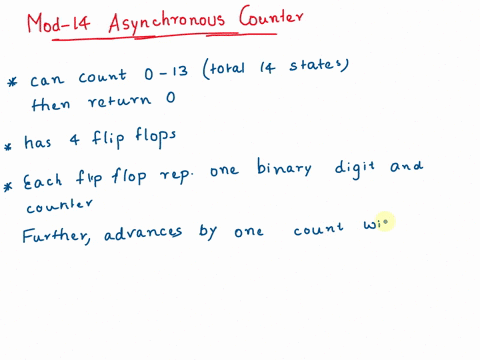 Mod-14 Asynchronous Counter
* can count 0-13 (total 14 states)
then return 0
* has 4 flip flops
* Each flip flop rep. one binary digit and
counter
Further, advances by one count wi